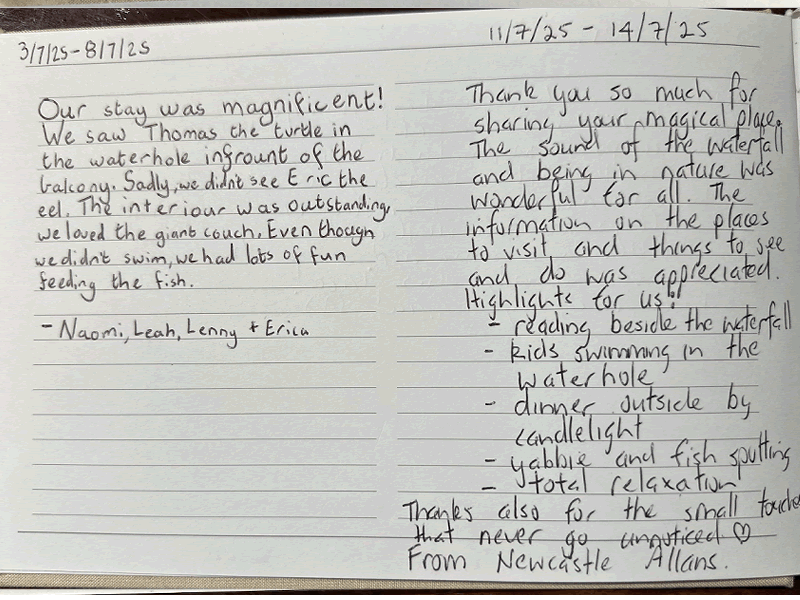 3/7/25-8/7/25
Our stay was magnificent!
We saw Thomas the turtle in
the waterhole infrount of the
balcony. Sadly, we didn't see Eric the
eel. The interiour was outstanding,
we loved the giant couch. Even though
we didn't swim, we had lots of fun
feeding the fish.
- Naomi, Leah, Lenny + Erica
11/7/25 - 14/7/25
Thank you so much for
sharing your magical place.
The sound of the waterfall
and being in nature was
wonderful for all. The
information on the places
to visit and things to see
and do was appreciated.
Highlights for us:
- reading beside the waterfall
- kids swimming in the
waterhole
- dinner outside by
candlelight
- yabbie and fish spotting
- total relaxation
Thanks also for the small touches
that never go unnoticed ♡
From Newcastle Allans.